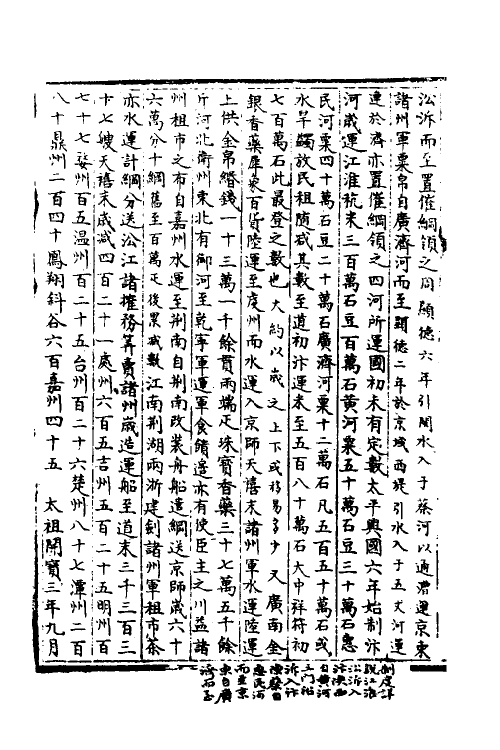 汴泝而至置催綱領之周顯德六年引閔水入于蔡河以通漕運京東
諸州軍粟帛自廣濟河而至顯德二年於京城西堤引水入于五丈河運
達於濟亦置催綱領之四河所運國初未有定數太平興國六年始制汴
河歲運江淮秔米三百萬石豆百萬石黃河粟五十萬石豆三十萬石惠
民河粟四十萬石豆二十萬石廣濟河粟十二萬石凡五百五十萬石或
水旱蠲放民租隨減其數至道初汴運米至五百八十萬石大中祥符初
七百萬石此最登之數也大約以歲之上下或移易多少又廣南金
銀香藥犀象百貨陸運至虔州而水運入京師天禧末諸州軍水運陸運
上供金帛緡錢一十三萬一千餘貫兩端疋珠寶香藥三十七萬五千餘
斤河北衛州東北有御河至乾寧軍運軍食饋邊亦有使臣主之川益諸
州租市之布自嘉州水運至荊南自荊南改裝舟船遣綱送京師歲六十
六萬分十綱舊至百萬疋後累減數江南荊湖兩浙建劍諸州軍租市茶
亦水運計綱分送沿江諸搉務筭賣諸州歲造運船至道末三千三百三
十七艘天禧末歲減四百二十一處州六百五吉州五百二十五明州百
七十七婺州百五温州百二十五台州百二十六楚州八十七潭州二百
八十鼎州二百四十鳳翔斜谷六百嘉州四十五 太祖開寶三年九月